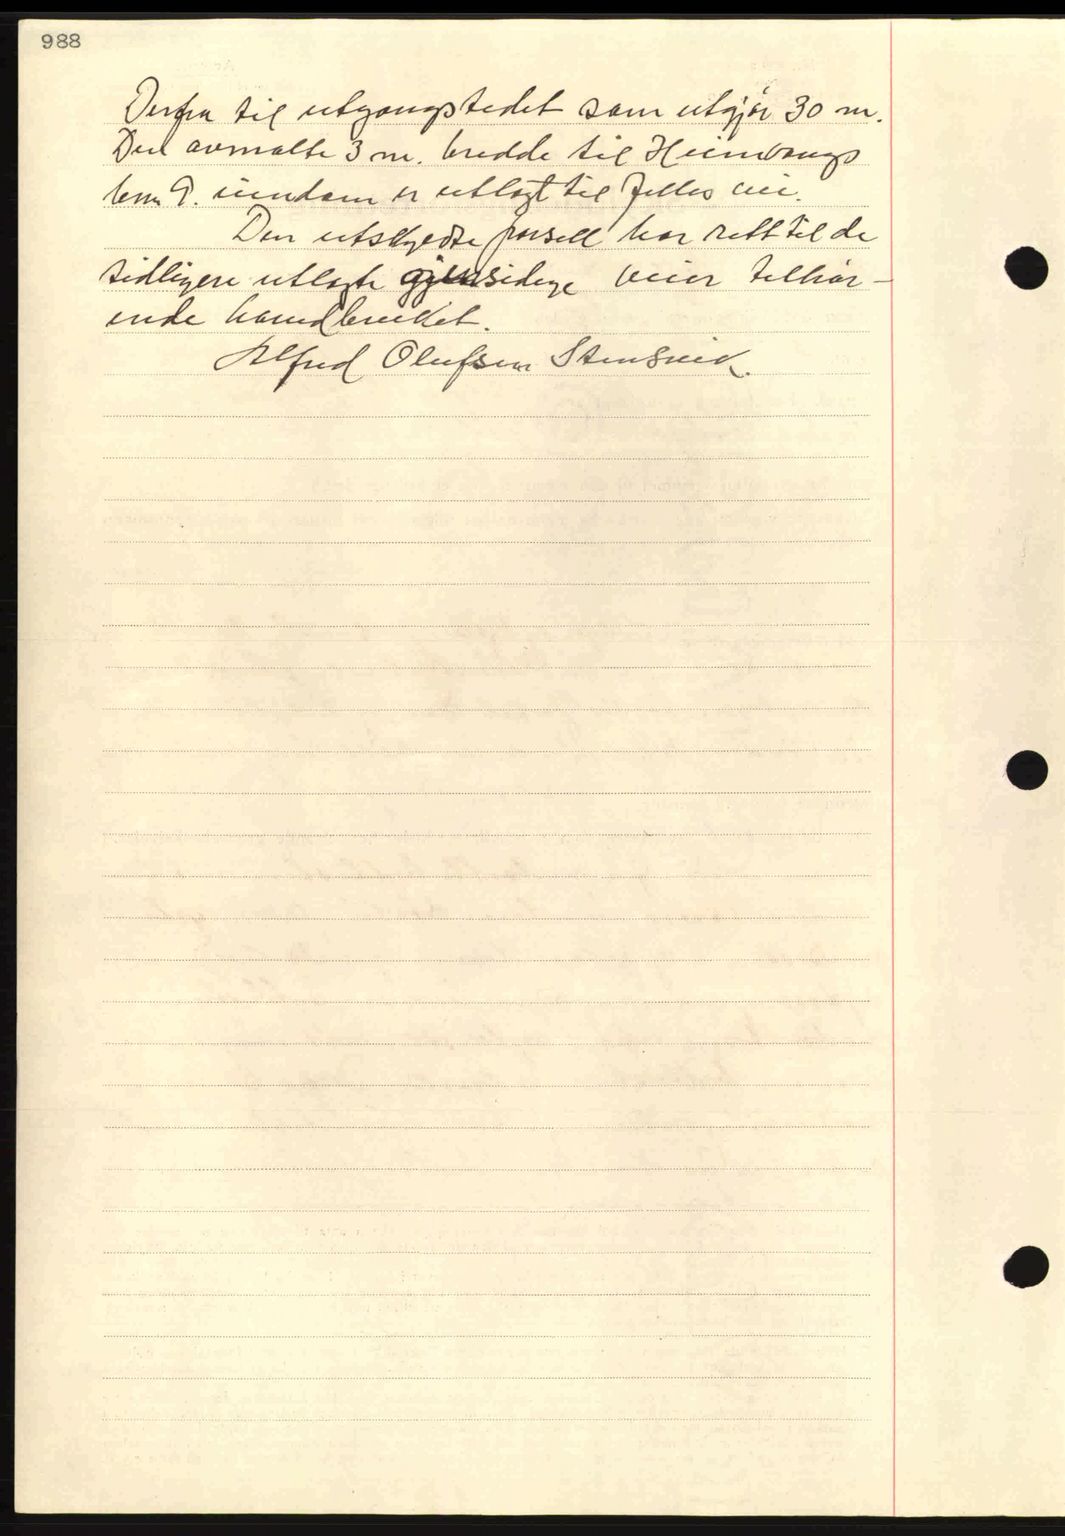 988
Derfra til utgangstedet som utgjør 30 m.
Den avmålte 3 m. bredde til Heimvangs
brn 9. eiendom er utlagt til felles vei.
Den utskyldte parsell har rett til de
tidligere utlagte gjensidige veier tilhør-
ende hovedbruket.
Alfred Olufsen Stensvik.